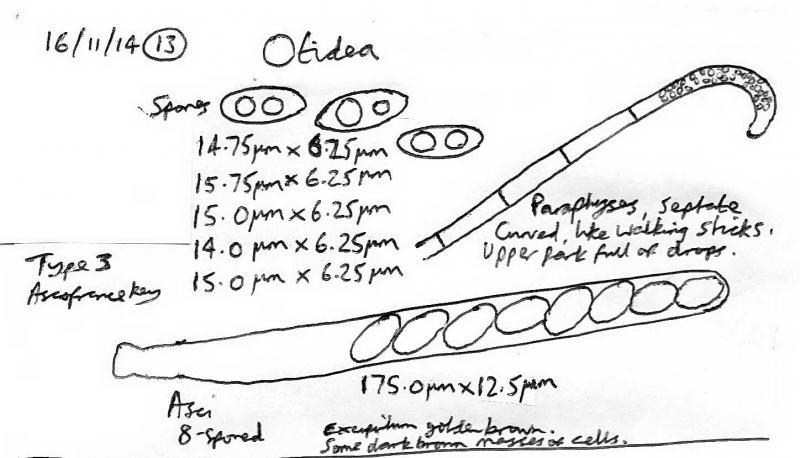 16/11/14 13
Otidea
Spores
14.75µm x 6.25µm
15.75µm x 6.25µm
15.0µm x 6.25µm
14.0µm x 6.25µm
15.0µm x 6.25µm
Paraphyses, septate
Curved, like walking sticks.
Upper part full of drops.
Type 3
Ascofrance key
175.0µm x 12.5µm
Asci
8-spored
Excipulum golden brown.
Some dark brown masses of cells.